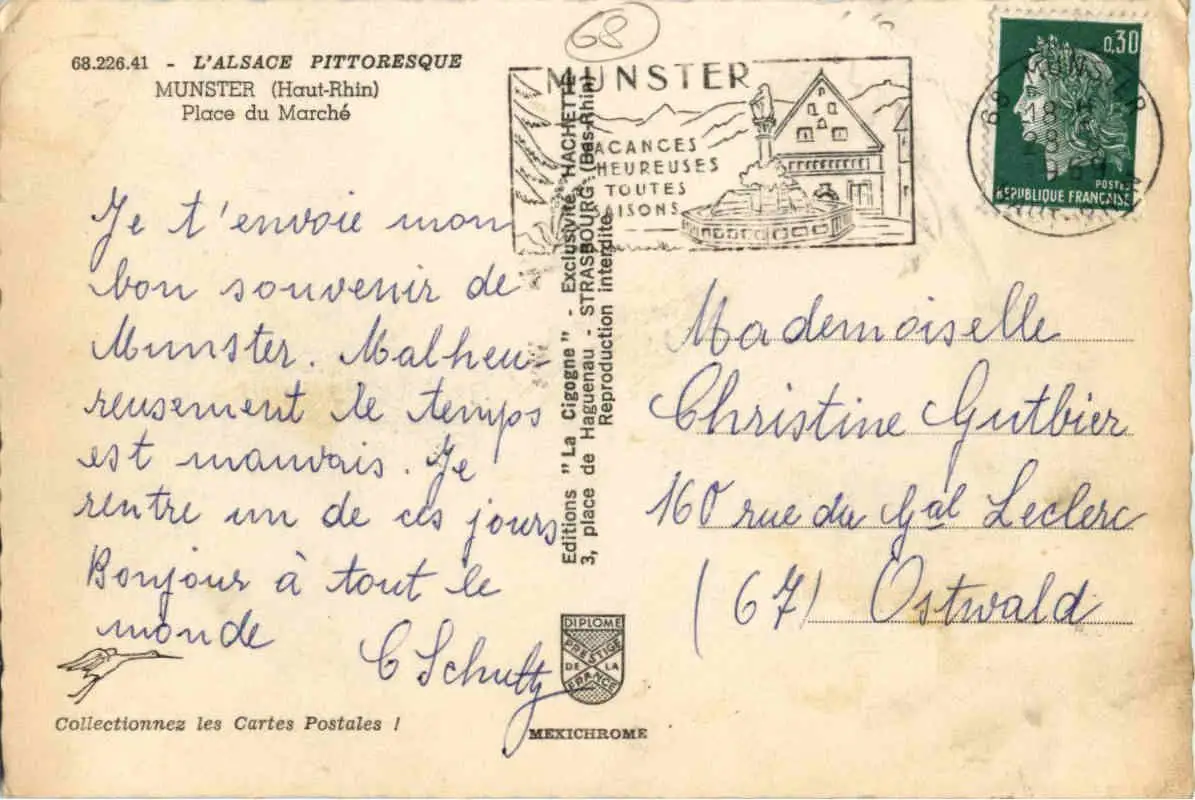 68.226.41 - L'ALSACE PITTORESQUE
MUNSTER (Haut-Rhin)
Place du Marché
68
MUNSTER
VACANCES
HEUREUSES
TOUTES
SAISONS
0,30
POSTES
REPUBLIQUE FRANÇAISE
68 MUNSTER
18 H
Je t'envoie mon
bon souvenir de
Munster. Malheu-
reusement le temps
est mauvais. Je
rentre un de ces jours
Bonjour à tout le
monde
C Schultz
Editions "La Cigogne" - Exclusivité HACHETTE
3, place de Haguenau - STRASBOURG (Bas-Rhin)
Reproduction interdite
Mademoiselle
Christine Gutbier
160 rue du Gal Leclerc
(67) Ostwald
DIPLOME
PRESTIGE
DE LA
FRANCE
MEXICHROME
Collectionnez les Cartes Postales !